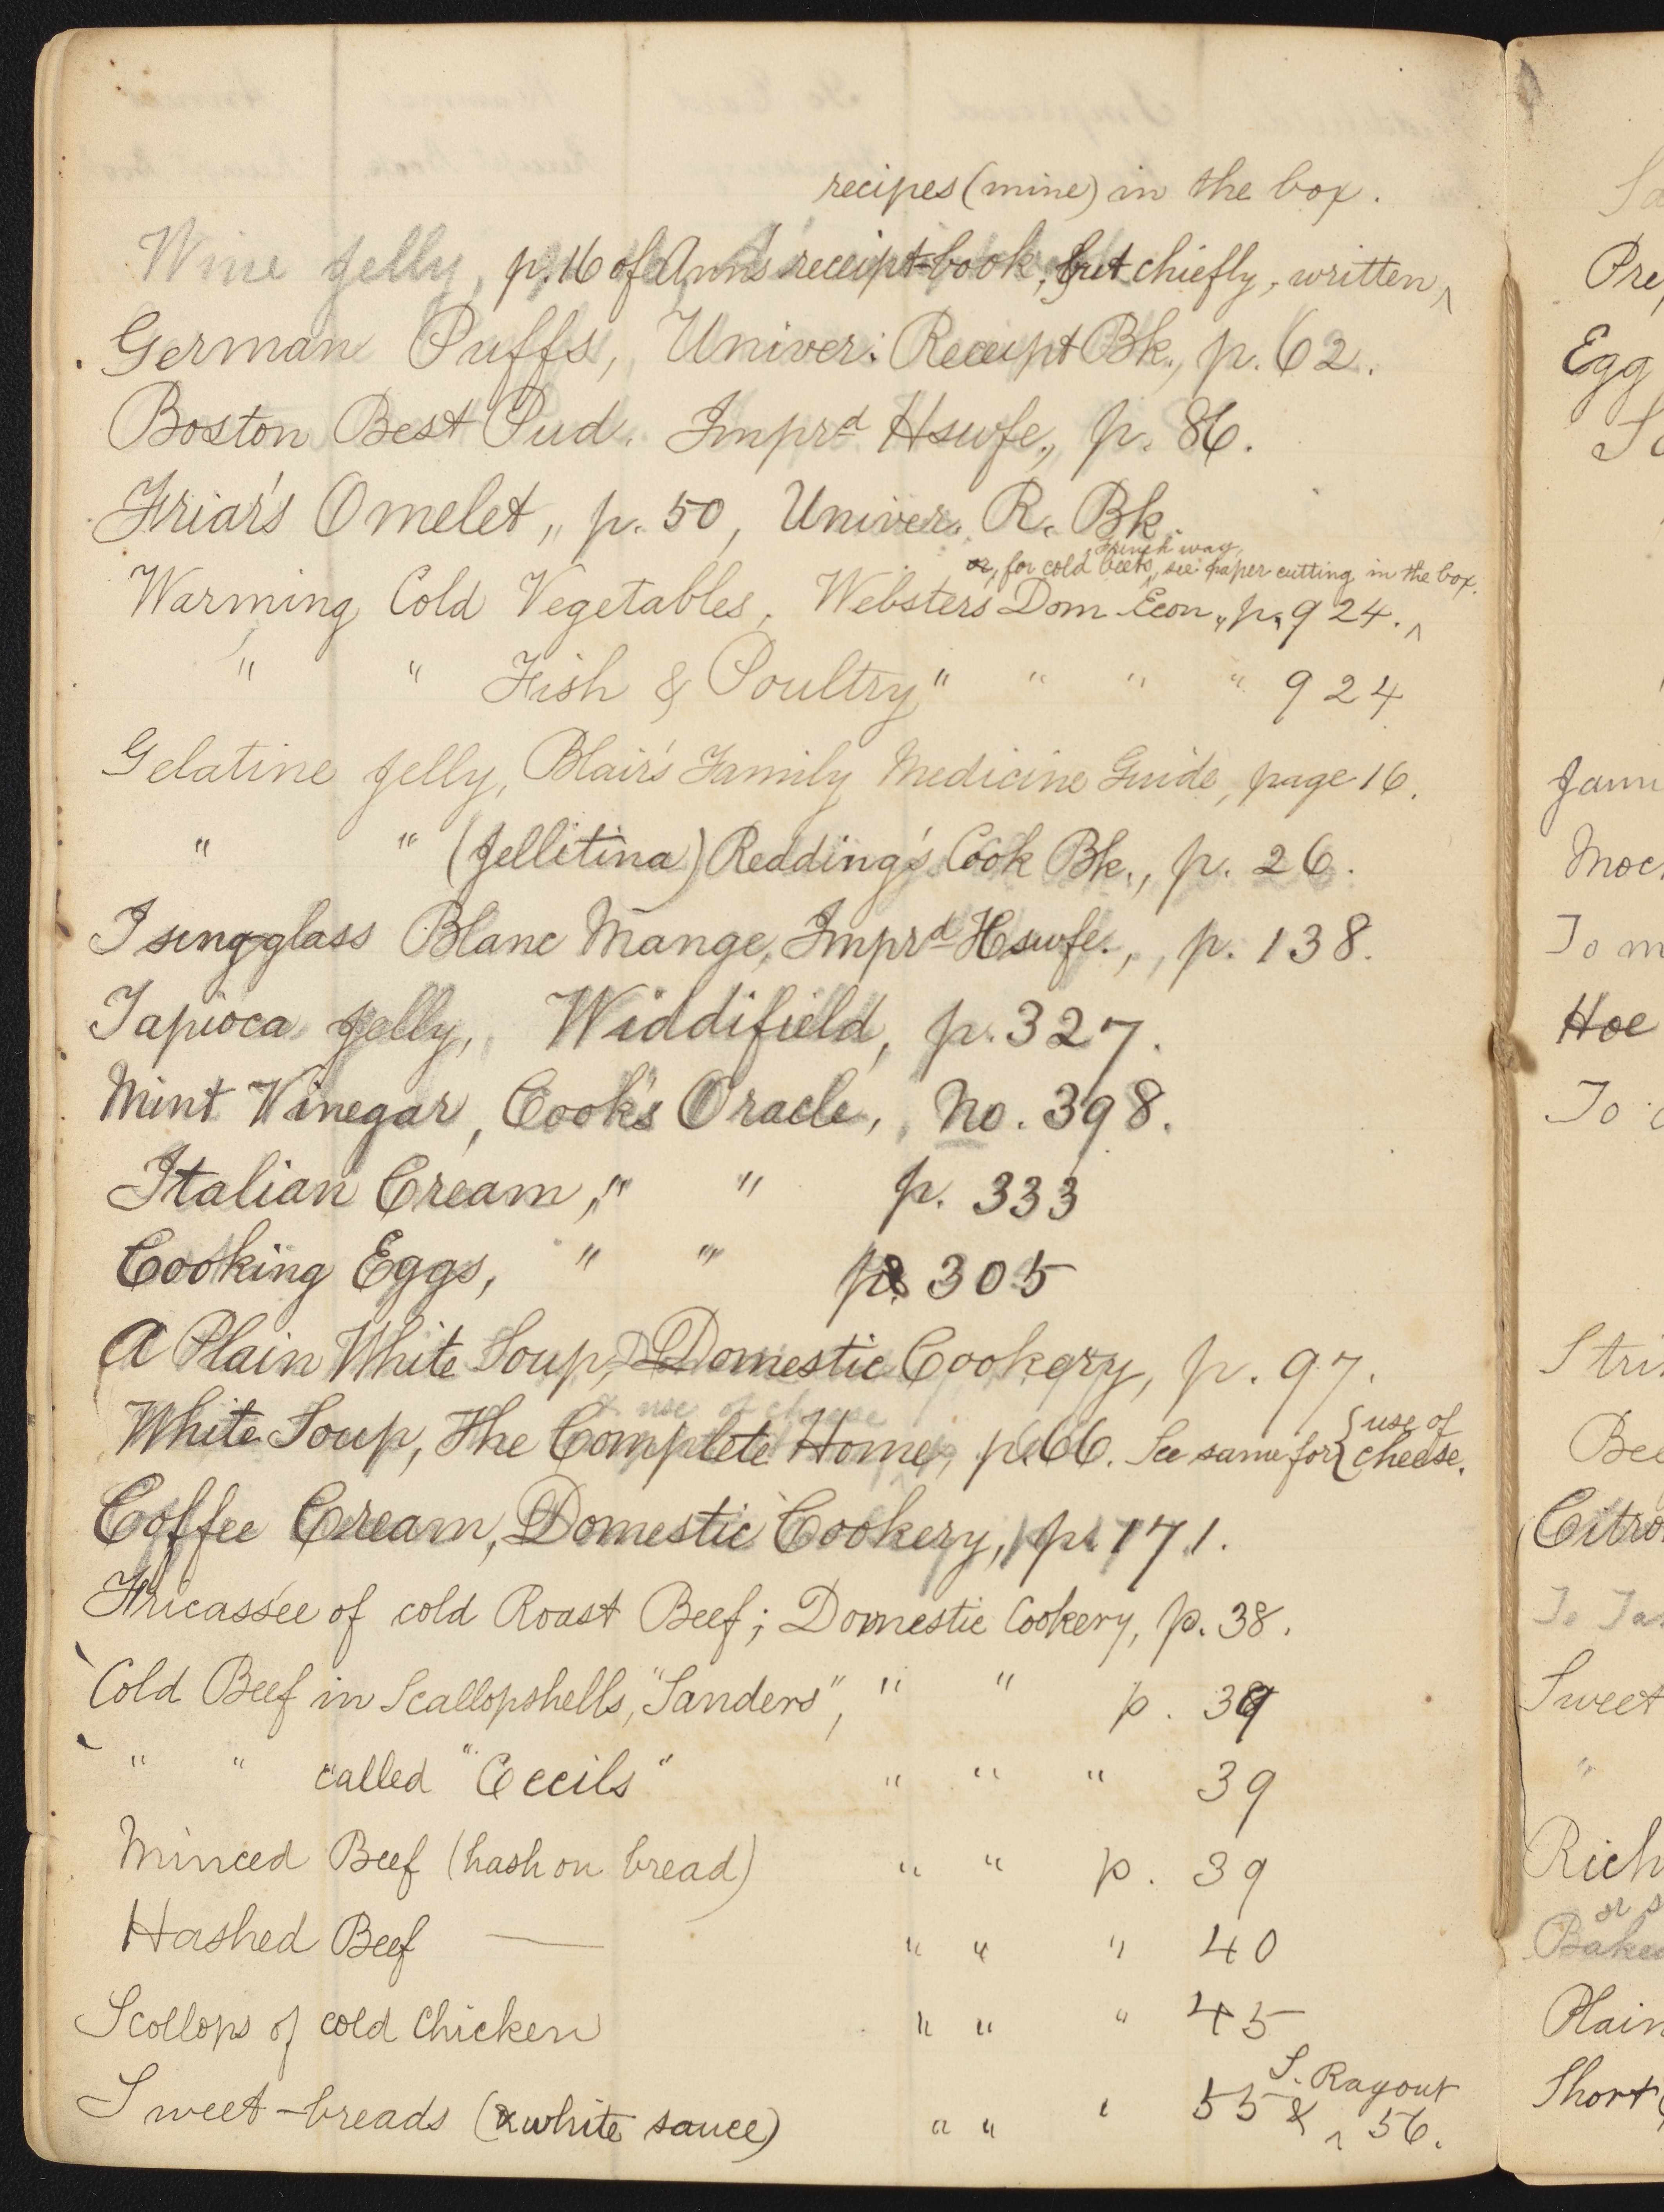 recipes (mine) in the box.
Wine Jelly, p. 16 of Ann's receipt-book, but chiefly, written ^
German Puffs, Univer. Receipt Bk., p. 62.
Boston Best Pud. Imprd Hswfe., p. 86.
Friar's Omelet, p. 50, Univer. R. Bk.
French way,
or, for cold beets, ^ see paper cutting in the box.
Warming Cold Vegetables, Webster's Dom Econ., p. 924. ^
" " Fish & Poultry " " " " 924
Gelatine Jelly, Blair's Family Medicine Guide, page 16.
" " (Jellitina) Redding's Cook Bk., p. 26.
Isingglass Blanc Mange, Imprd Hswfe., p. 138.
Tapioca Jelly, Widdifield, p. 327.
Mint Vinegar, Cook's Oracle, No. 398.
Italian Cream, " " p. 333
Cooking Eggs, " " p. 305
A Plain White Soup, Domestic Cookery, p. 97.
& use of cheese
White Soup, The Complete Home, p. 66. See same for { use of cheese.
Coffee Cream, Domestic Cookery, p. 171.
Fricassée of cold Roast Beef; Domestic Cookery, p. 38.
Cold Beef in Scallopshells, "Sanders", " " p. 39
" " called "Cecils" " " " 39
Minced Beef (hash on bread) " " p. 39
Hashed Beef — " " " 40
Scollops of cold Chicken " " " 45
S. Ragout
Sweet-breads (& white sauce) " " " 55 & ^ 56.
Pre
Egg
Jam
To m
Hoe
To
Stri
Bee
Citro
Sweet
"
Rich
or s
Bake
Plain
Short